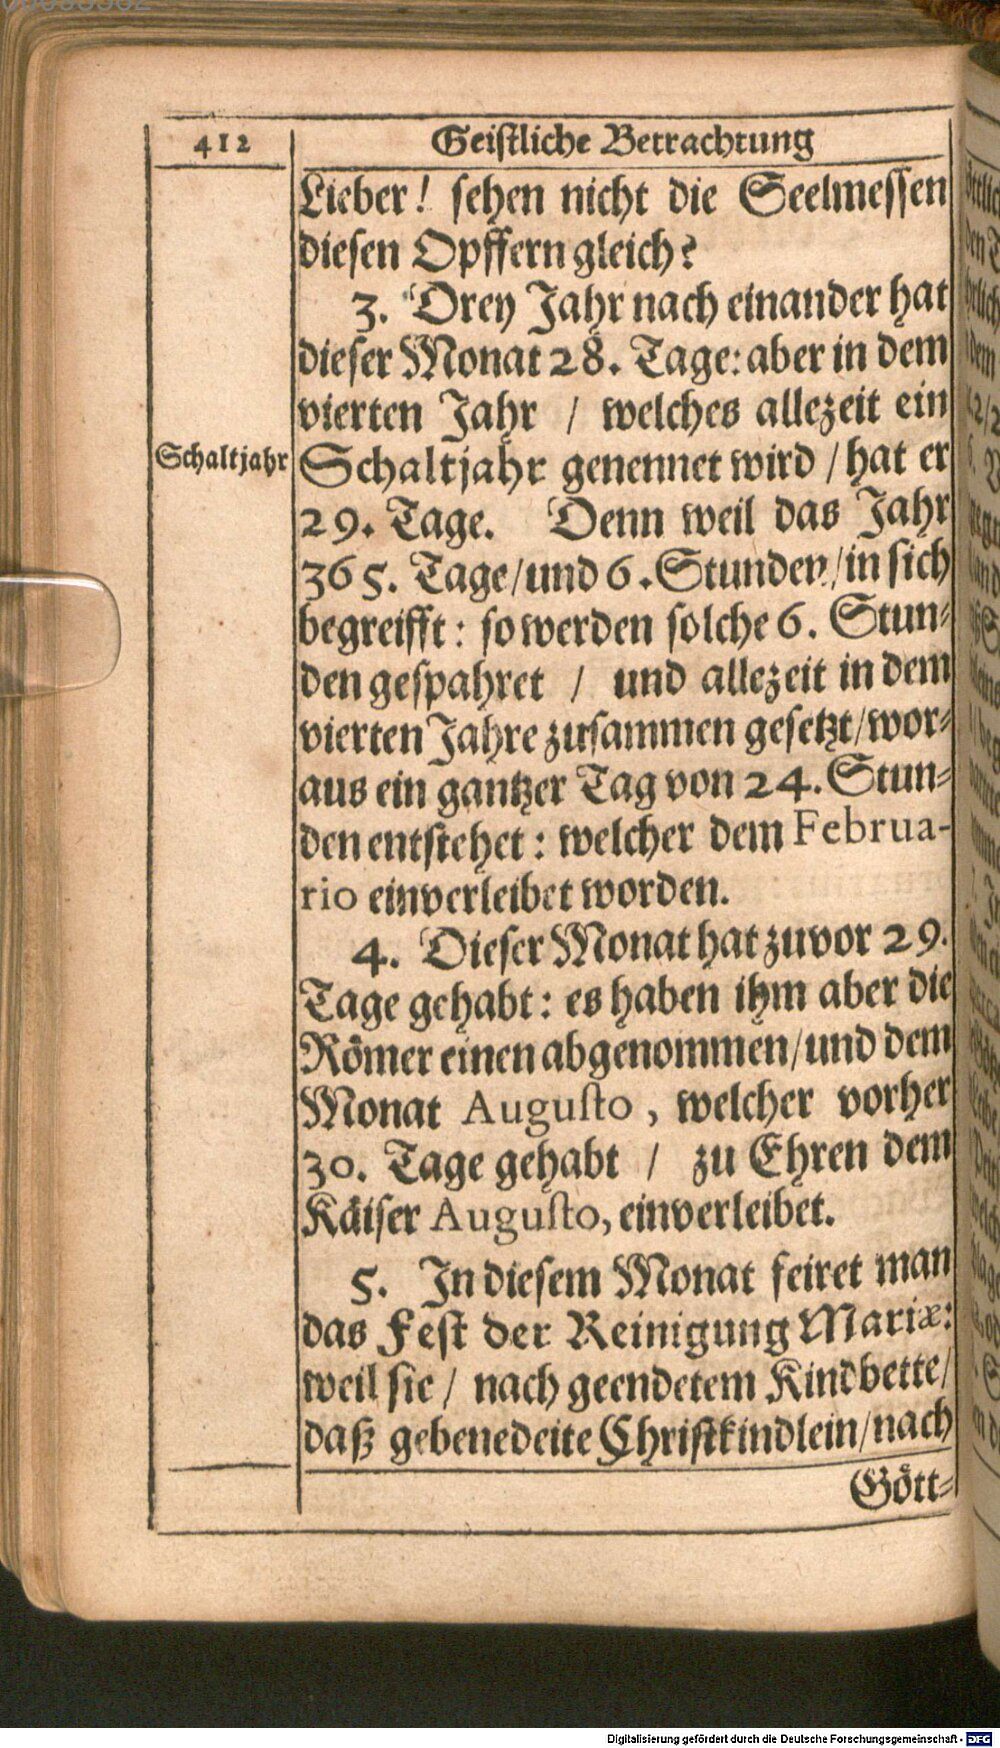 412
Geistliche Betrachtung
Lieber! sehen nicht die Seelmessen
diesen Opffern gleich?
3. Drey Jahr nach einander hat
dieser Monat 28. Tage: aber in dem
vierten Jahr / welches allezeit ein
Schaltjahr
Schaltjahr genennet wird / hat er
29. Tage. Denn weil das Jahr
365. Tage/und 6. Stunden/in sich
begreifft: so werden solche 6. Stun-
den gespahret / und allezeit in dem
vierten Jahre zusammen gesetzt/wor-
aus ein gantzer Tag von 24. Stun-
den entstehet: welcher dem Februa-
rio einverleibet worden.
4. Dieser Monat hat zuvor 29.
Tage gehabt: es haben ihm aber die
Römer einen abgenommen/und dem
Monat Augusto, welcher vorher
30. Tage gehabt / zu Ehren dem
Käiser Augusto, einverleibet.
5. In diesem Monat feiret man
das Fest der Reinigung Mariæ:
weil sie / nach geendetem Kindbette/
daß gebenedeite Christkindlein/nach
Gött-
Digitalisierung gefördert durch die Deutsche Forschungsgemeinschaft - DFG